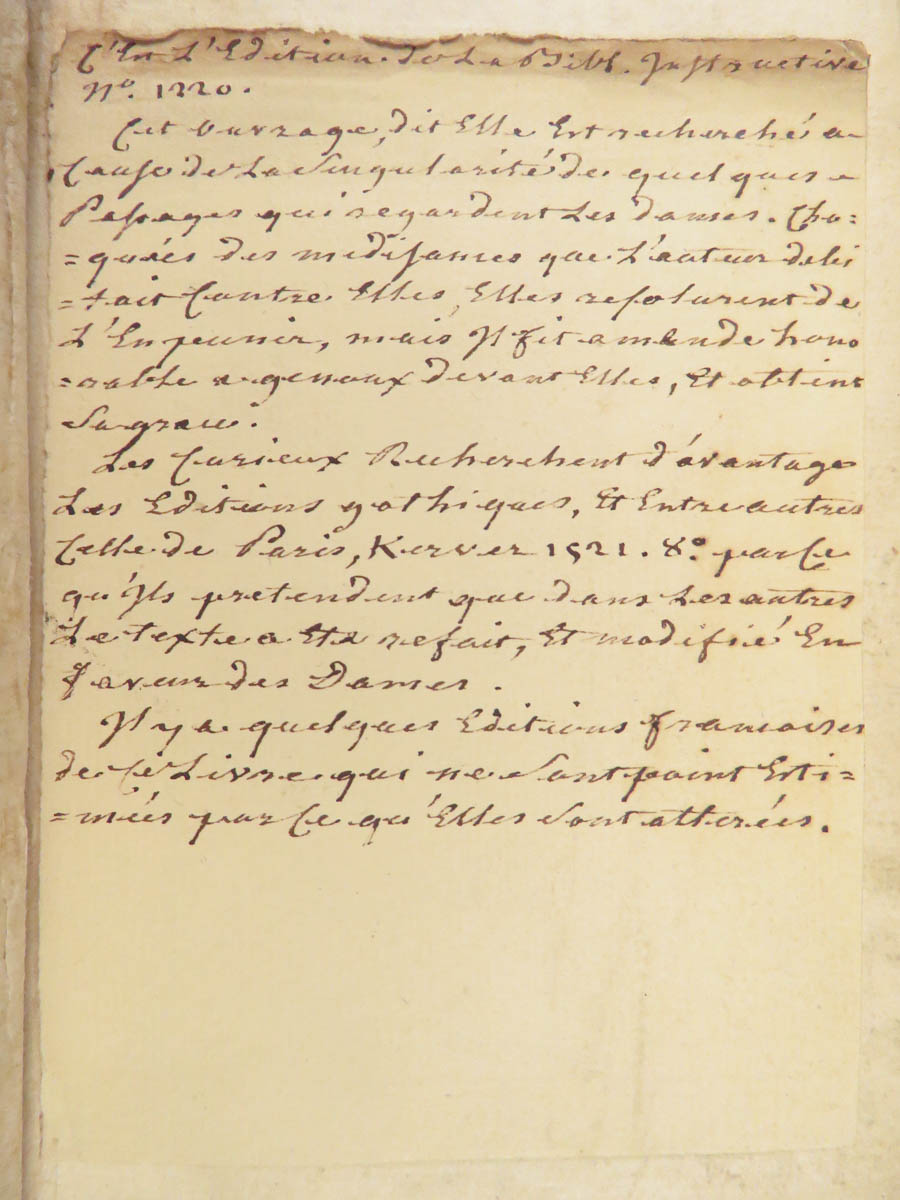 C'Est L'Edition de La Bibl. Instructive
N°. 1220.
Cet Ouvrage, dit Elle Est recherché a
Cause de La Singularité de quelques
Passages qui regardent Les dames. Cho=
=quées des médisances que L'auteur debi
=tait Contre Elles, Elles resolurent de
L'En punir, mais Il fit amende hono
=rable a genoux devant Elles, Et obtint
Sa grace.
Les Curieux Recherchent d'avantage
Les Editions gothiques, Et Entre autres
Celle de Paris, Kerver 1521. 8° par Ce
qu'Ils pretendent que dans Les autres
Le texte a Eté refait, Et modifié En
faveur des Dames.
Il y a quelques Editions francoises
de Ce Livre qui ne Sont point Esti=
=mées par Ce qu'Elles Sont alterées.